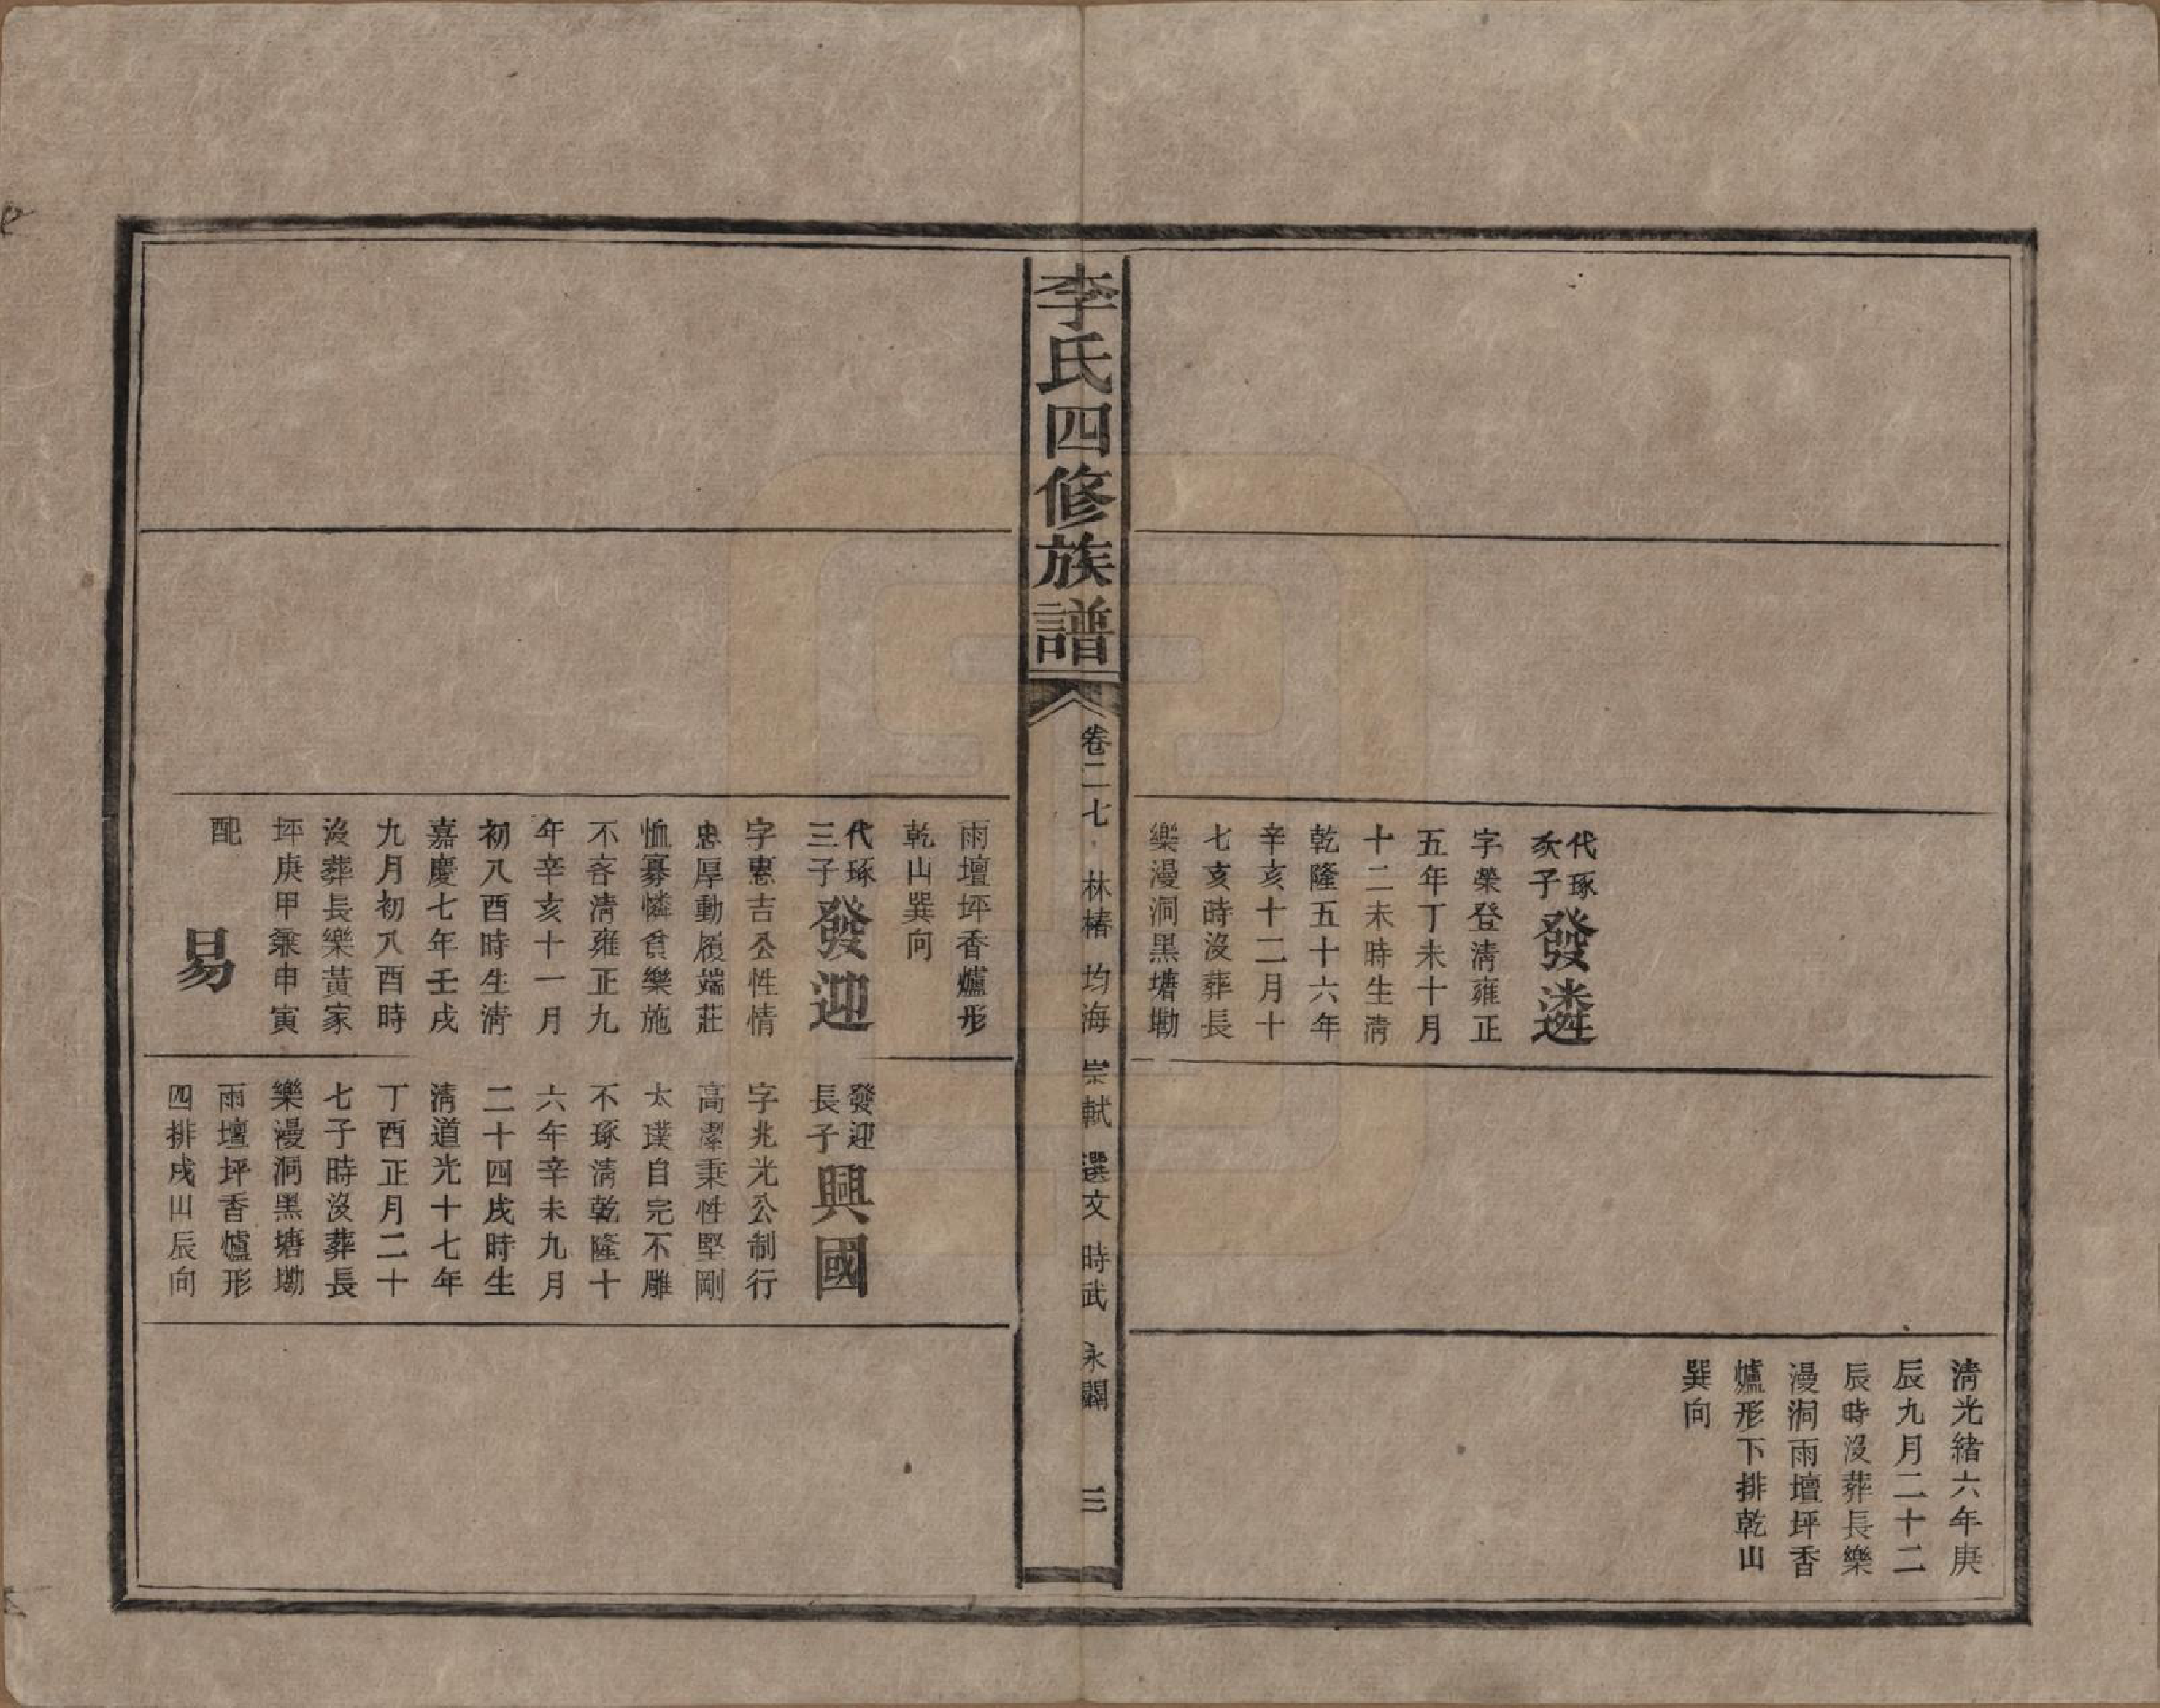 清光緒六年庚
辰九月二十二
辰時沒葬長樂
漫洞雨壇坪香
爐形下排乾山
巽向
代琢
次子
發遴
字榮登淸雍正
五年丁未十月
十二未時生淸
乾隆五十六年
辛亥十二月十
七亥時沒葬長
樂漫洞黑塘坳
李氏四修族譜
卷二七 林椿 均海 崇軾 選文 時武 永闓 三
雨壇坪香爐形
乾山巽向
代琢
三子
發迎
字惠吉公性情
忠厚動履端莊
恤寡憐貧樂施
不吝淸雍正九
年辛亥十一月
初八酉時生淸
嘉慶七年壬戌
九月初八酉時
沒葬長樂黃家
坪庚甲兼申寅
配 易
發迎
長子
興國
字兆光公制行
高潔秉性堅剛
太璞自完不雕
不琢淸乾隆十
六年辛未九月
二十四戌時生
淸道光十七年
丁酉正月二十
七子時沒葬長
樂漫洞黑塘坳
雨壇坪香爐形
四排戌山辰向